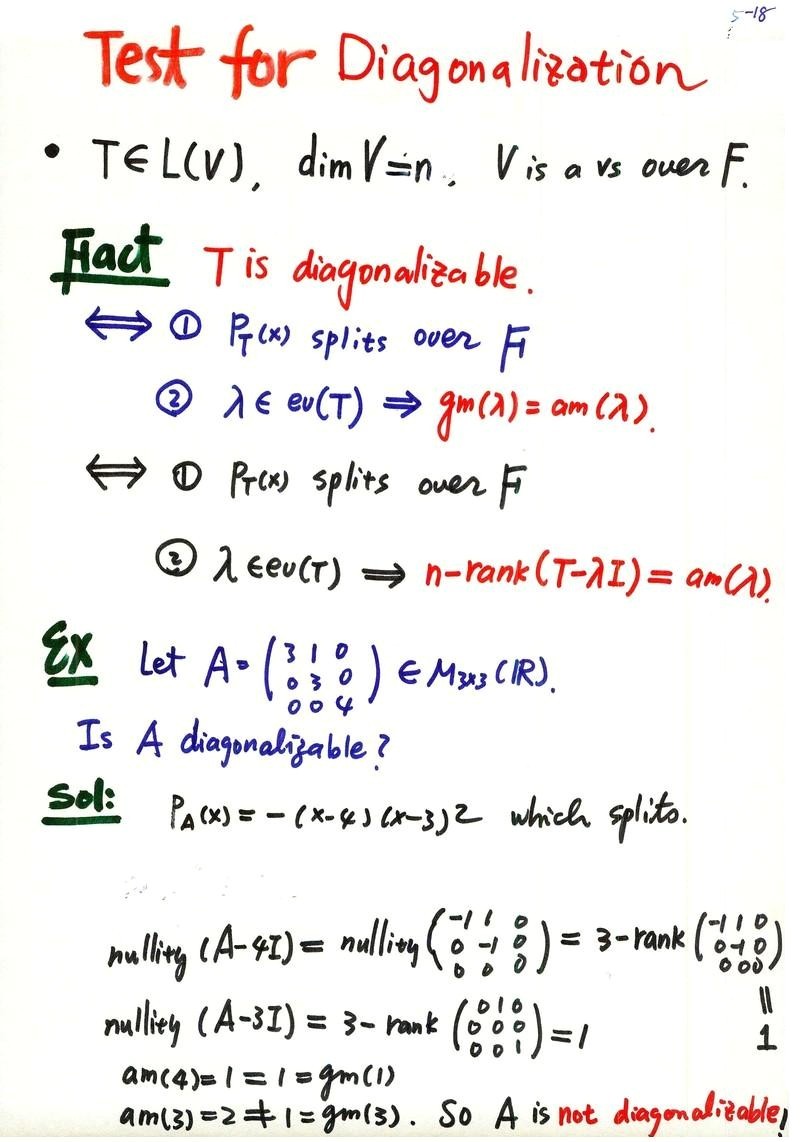 5-18
Test for Diagonalization
• T∈L(V), dim V=n, V is a vs over F.
Fact T is diagonalizable.
⟺ ① P_T(x) splits over F
② λ∈ev(T) ⇒ gm(λ) = am(λ).
⟺ ① P_T(x) splits over F
② λ∈ev(T) ⇒ n-rank(T-λI) = am(λ).
Ex Let A = (3 1 0; 0 3 0; 0 0 4) ∈ M_{3x3}(IR).
Is A diagonalizable?
Sol: P_A(x) = -(x-4)(x-3)2 which splits.
nullity (A-4I) = nullity (-1 1 0; 0 -1 0; 0 0 0) = 3-rank (-1 1 0; 0 -1 0; 0 0 0)
||
nullity (A-3I) = 3-rank (0 1 0; 0 0 0; 0 0 1) = 1
1
am(4)=1=1=gm(1)
am(3)=2≠1=gm(3). So A is not diagonalizable!